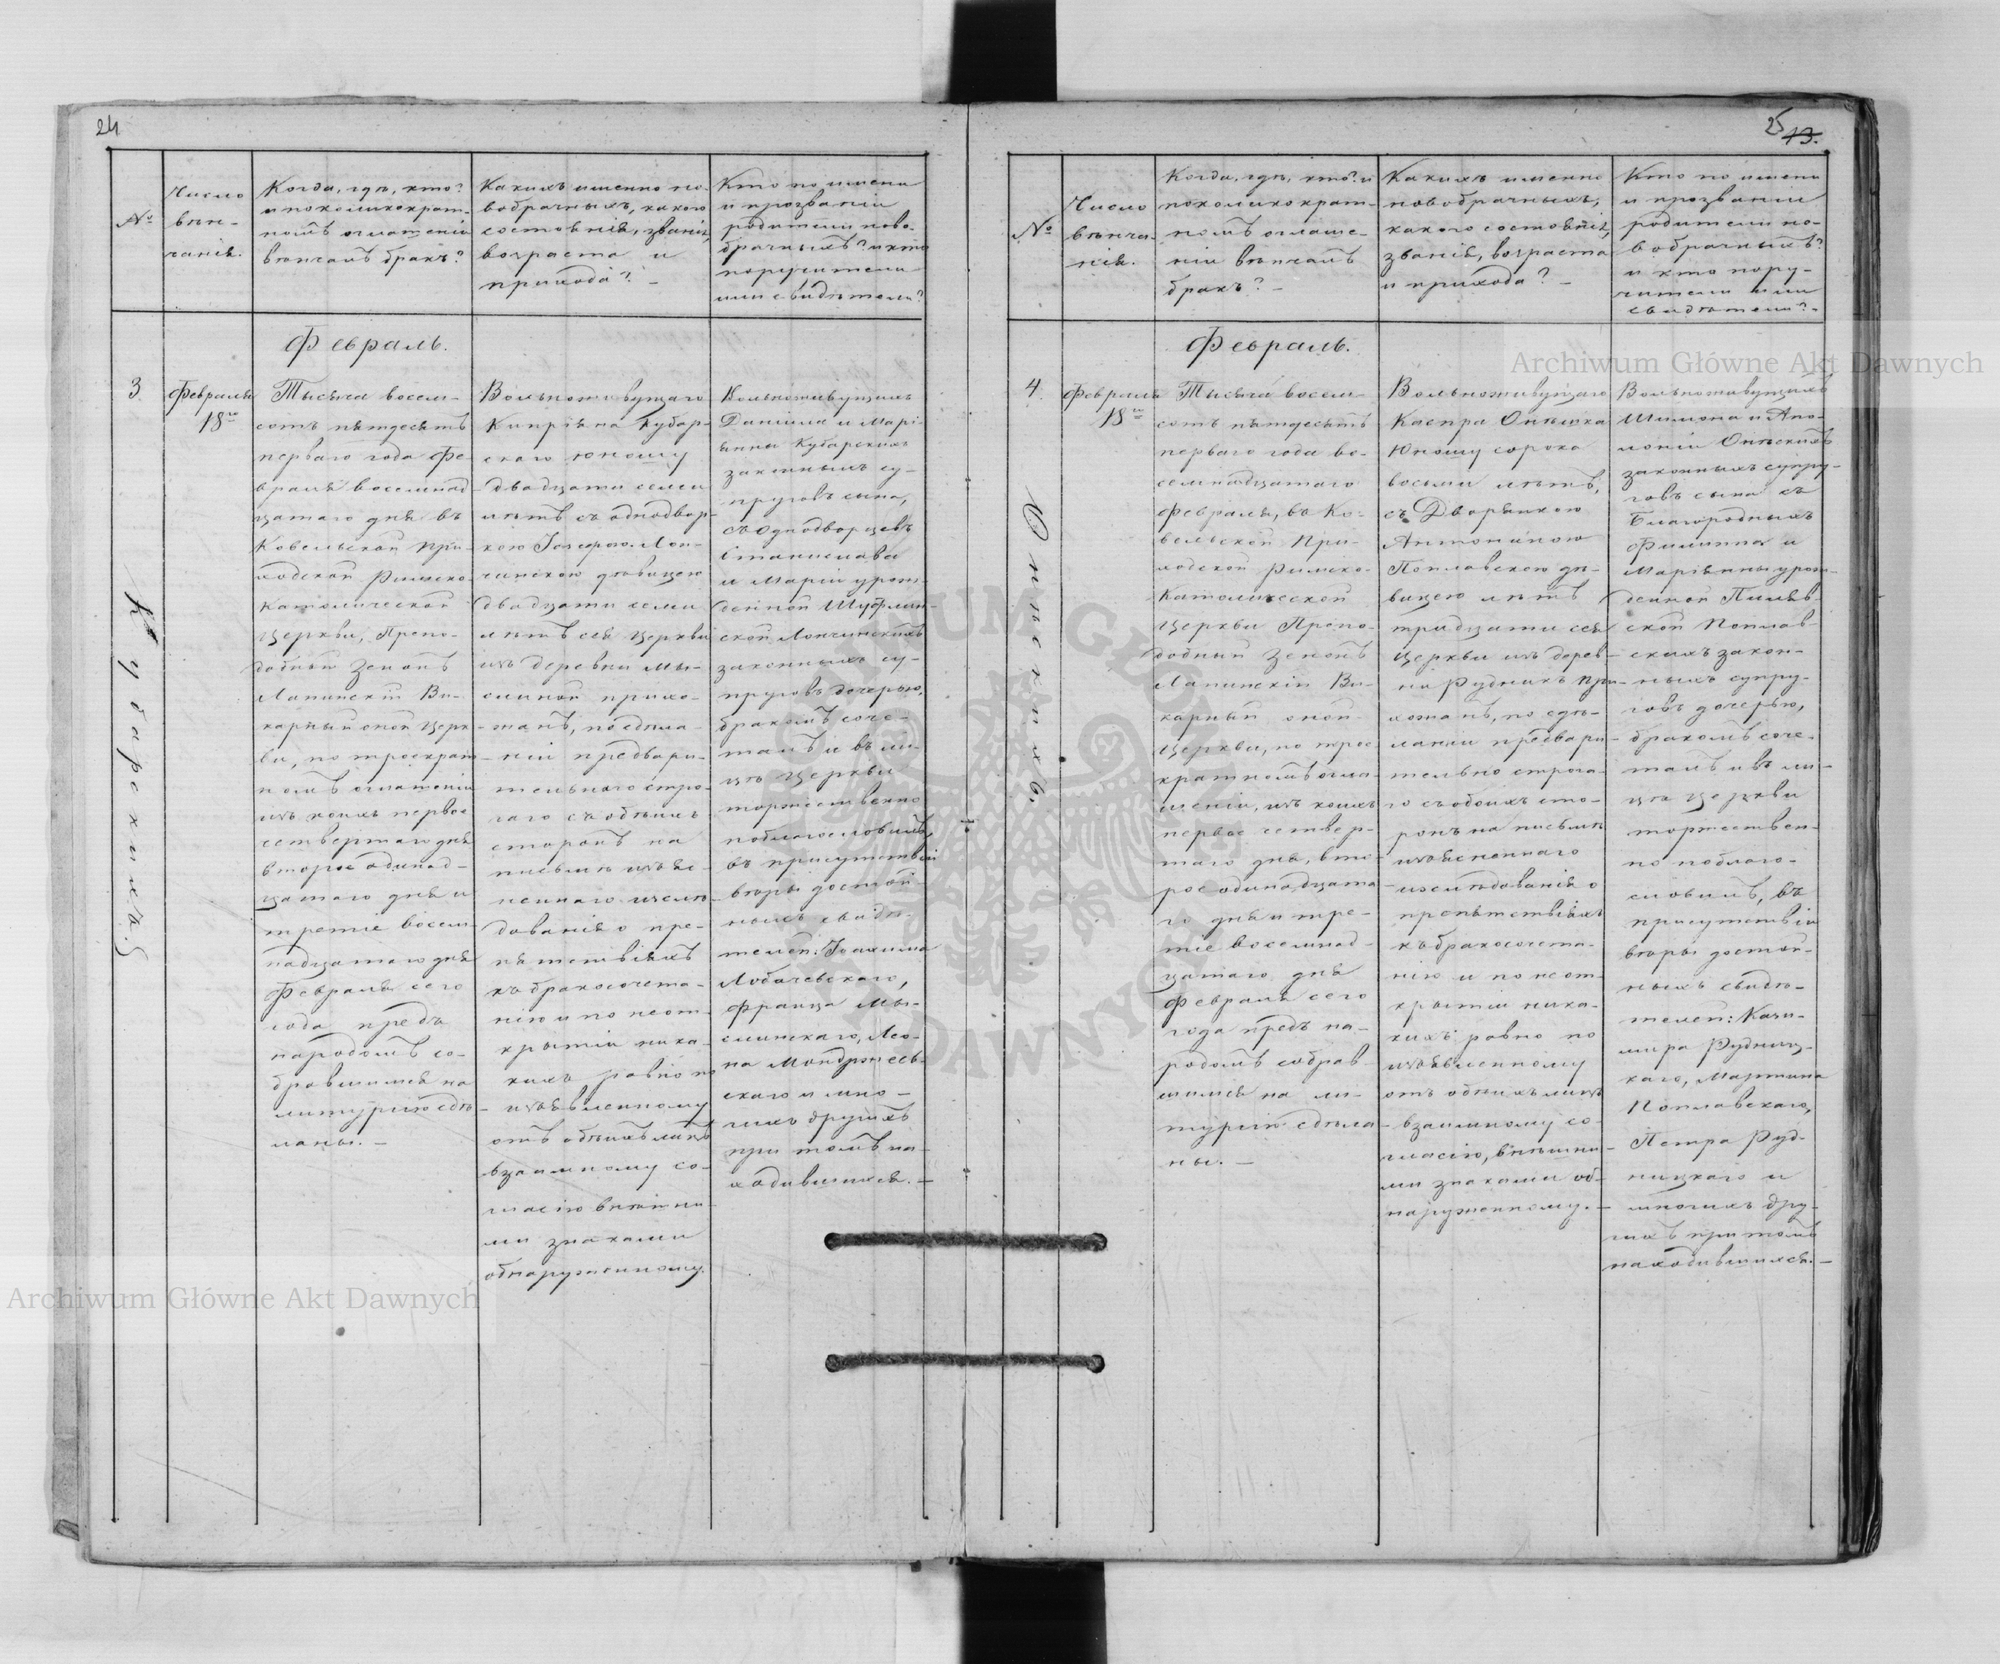 24
№
Число
вѣн-
чанія.
Когда, гдѣ, кто?
и поколикократ-
номъ оглашеніи
вѣнчалъ бракъ?
Какихъ именно но-
вобрачныхъ, какого
состоянія, званія,
возраста и
прихода? -
Кто по имени
и прозванію
родители ново-
брачныхъ? и кто
поручители
или свидѣтели?
Февраль.
3
Февраля
18го
Кубарскихъ.
Тысяча восем-
сотъ пятдесятъ
перваго года Фе-
враля восемнад-
цатаго дня въ
Ковельской При-
ходской Римско
Католической
Церкви, Препо-
добный Зенонъ
Лапинскій Ви-
карный оной Церк-
ви, по троекрат-
номъ оглашеніи
изъ коихъ первое
четвертаго дня
второе одинад-
цатаго дня и
третіе восем-
надцатаго дня
Февраля сего
года предъ
народомъ со-
бравшимся на
литургію сдѣ-
ланы. -
Вольноживущаго
Кипріяна Кубар-
скаго юношу
двадцати семи
лѣтъ съ однодвор-
кою Іозефою Лон-
чинскою дѣвицею
двадцати семи
лѣтъ сея Церкви
изъ деревни Мы-
слиной прихо-
жанъ, по сдѣла-
ніи предвари-
тельнаго стро-
гаго съ обѣихъ
сторонъ на
письмѣ изъяс-
неннаго изслѣ-
дованія о пре-
пятствіяхъ
къ бракосочета-
нію и по неот-
крытіи ника-
кихъ равно по
изъявленному
отъ обѣихъ лицъ
взаимному со-
гласію внѣшни-
ми знаками
обнаруженному.
Вольноживущихъ
Даніила и Марі-
янны Кубарскихъ
законныхъ су-
пруговъ сына,
съ Однодворцевъ
Станислава
и Маріи урож-
денной
Лончинскихъ
законныхъ су-
пруговъ дочерью,
бракомъ соче-
талъ и въ ли-
цѣ Церкви
торжественно
поблагословилъ,
въ присутствіи
вѣры достой-
ныхъ свидѣ-
телей: Іоахима
Лобачевскаго,
Франца Мы-
слинскаго, Лео-
на Мондржеев-
скаго и мно-
гихъ другихъ
при томъ на-
ходившихся. -
25
13.
№
Число
вѣнча-
нія.
Когда, гдѣ, кто? и
поколикократ-
номъ оглаше-
ніи вѣнчалъ
бракъ? -
Какихъ именно
новобрачныхъ,
какого состоянія,
званія, возраста
и прихода? -
Кто по имени
и прозванію
родители но-
вобрачныхъ?
и кто пору-
чители или
свидѣтели? -
Февраль.
4.
Февраля
18го
Опѣскихъ.
Тысяча восем-
сотъ пятдесятъ
перваго года во-
семнадцатаго
Февраля, въ Ко-
вельской При-
ходской Римско-
Католической
Церкви Препо-
добный Зенонъ
Лапинскій Ви-
карный оной
Церкви, по трое-
кратномъ огла-
шеніи, изъ коихъ
первое четвер-
таго дня, вто-
рое одинадцата-
го дня и тре-
тіе восемнад-
цатаго дня
Февраля сего
года предъ на-
родомъ собрав-
шимся на ли-
тургію сдѣла-
ны. -
Вольноживущаго
Каспра Опѣшка
Юношу сорока
восьми лѣтъ,
съ Дворянкою
Антониною
Поплавскою дѣ-
вицею лѣтъ
тридцати сея
Церкви изъ дерев-
ни Рудникъ При-
хожанъ, по сдѣ-
ланіи предвари-
тельно строга-
го съ обоихъ сто-
ронъ на письмѣ
изъясненнаго
изслѣдованія о
препятствіяхъ
къ бракосочета-
нію и по неот-
крытіи ника-
кихъ равно по
изъявленному
отъ обоихъ лицъ
взаимному со-
гласію, внѣшни-
ми знаками об-
наруженному. -
Вольноживущихъ
Шимона и Апо-
лоніи Опѣскихъ
законныхъ супру-
говъ сына съ
Благородныхъ
Филиппа и
Маріянны урож-
денной
Поплав-
скихъ закон-
ныхъ супру-
говъ дочерью,
бракомъ соче-
талъ и въ ли-
цѣ Церкви
торжествен-
но поблаго-
словилъ, въ
присутствіи
вѣры достой-
ныхъ свидѣ-
телей: Кази-
мира Рудниц-
каго, Мартина
Поплавскаго,
Петра Руд-
ницкаго и
многихъ дру-
гихъ при томъ
находившихся. -
Archiwum Główne Akt Dawnych
Archiwum Główne Akt Dawnych
ARCHIWUM GŁÓWNE AKT DAWNYCH